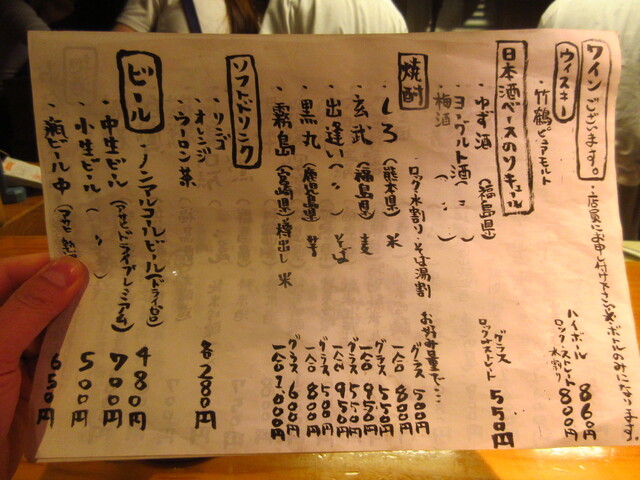 ワインございます。・店員にお申し付け下さい※ボトルのみになります。
ウィスキー
・竹鶴ピュアモルト ハイボール 860円
ロック・ストレート 水割り 800円
日本酒ベースのリキュール
・ゆず酒(福島県)
・ヨーグルト酒(〃)
・梅酒(〃)
グラス ロック・ストレート 550円
焼酎 ロック・水割り・そば湯割 お好み量で…
・しろ(熊本県)米 グラス 500円 一合 800円
・玄武(福島県)麦 グラス 550円 一合 950円
・出逢い(〃)そば グラス 550円 一合 950円
・黒丸(鹿児島県)芋 グラス 500円 一合 800円
・霧島(宮崎県)樽出し 米 グラス 600円 一合 1000円
ソフトドリンク
・リンゴ
・オレンジ
・ウーロン茶
各280円
ビール
・ノンアルコールビール(ドライゼロ) 480円
・中生ビール(アサヒドライプレミアム) 700円
・小生ビール(〃) 500円
・瓶ビール中(アサヒ 650円